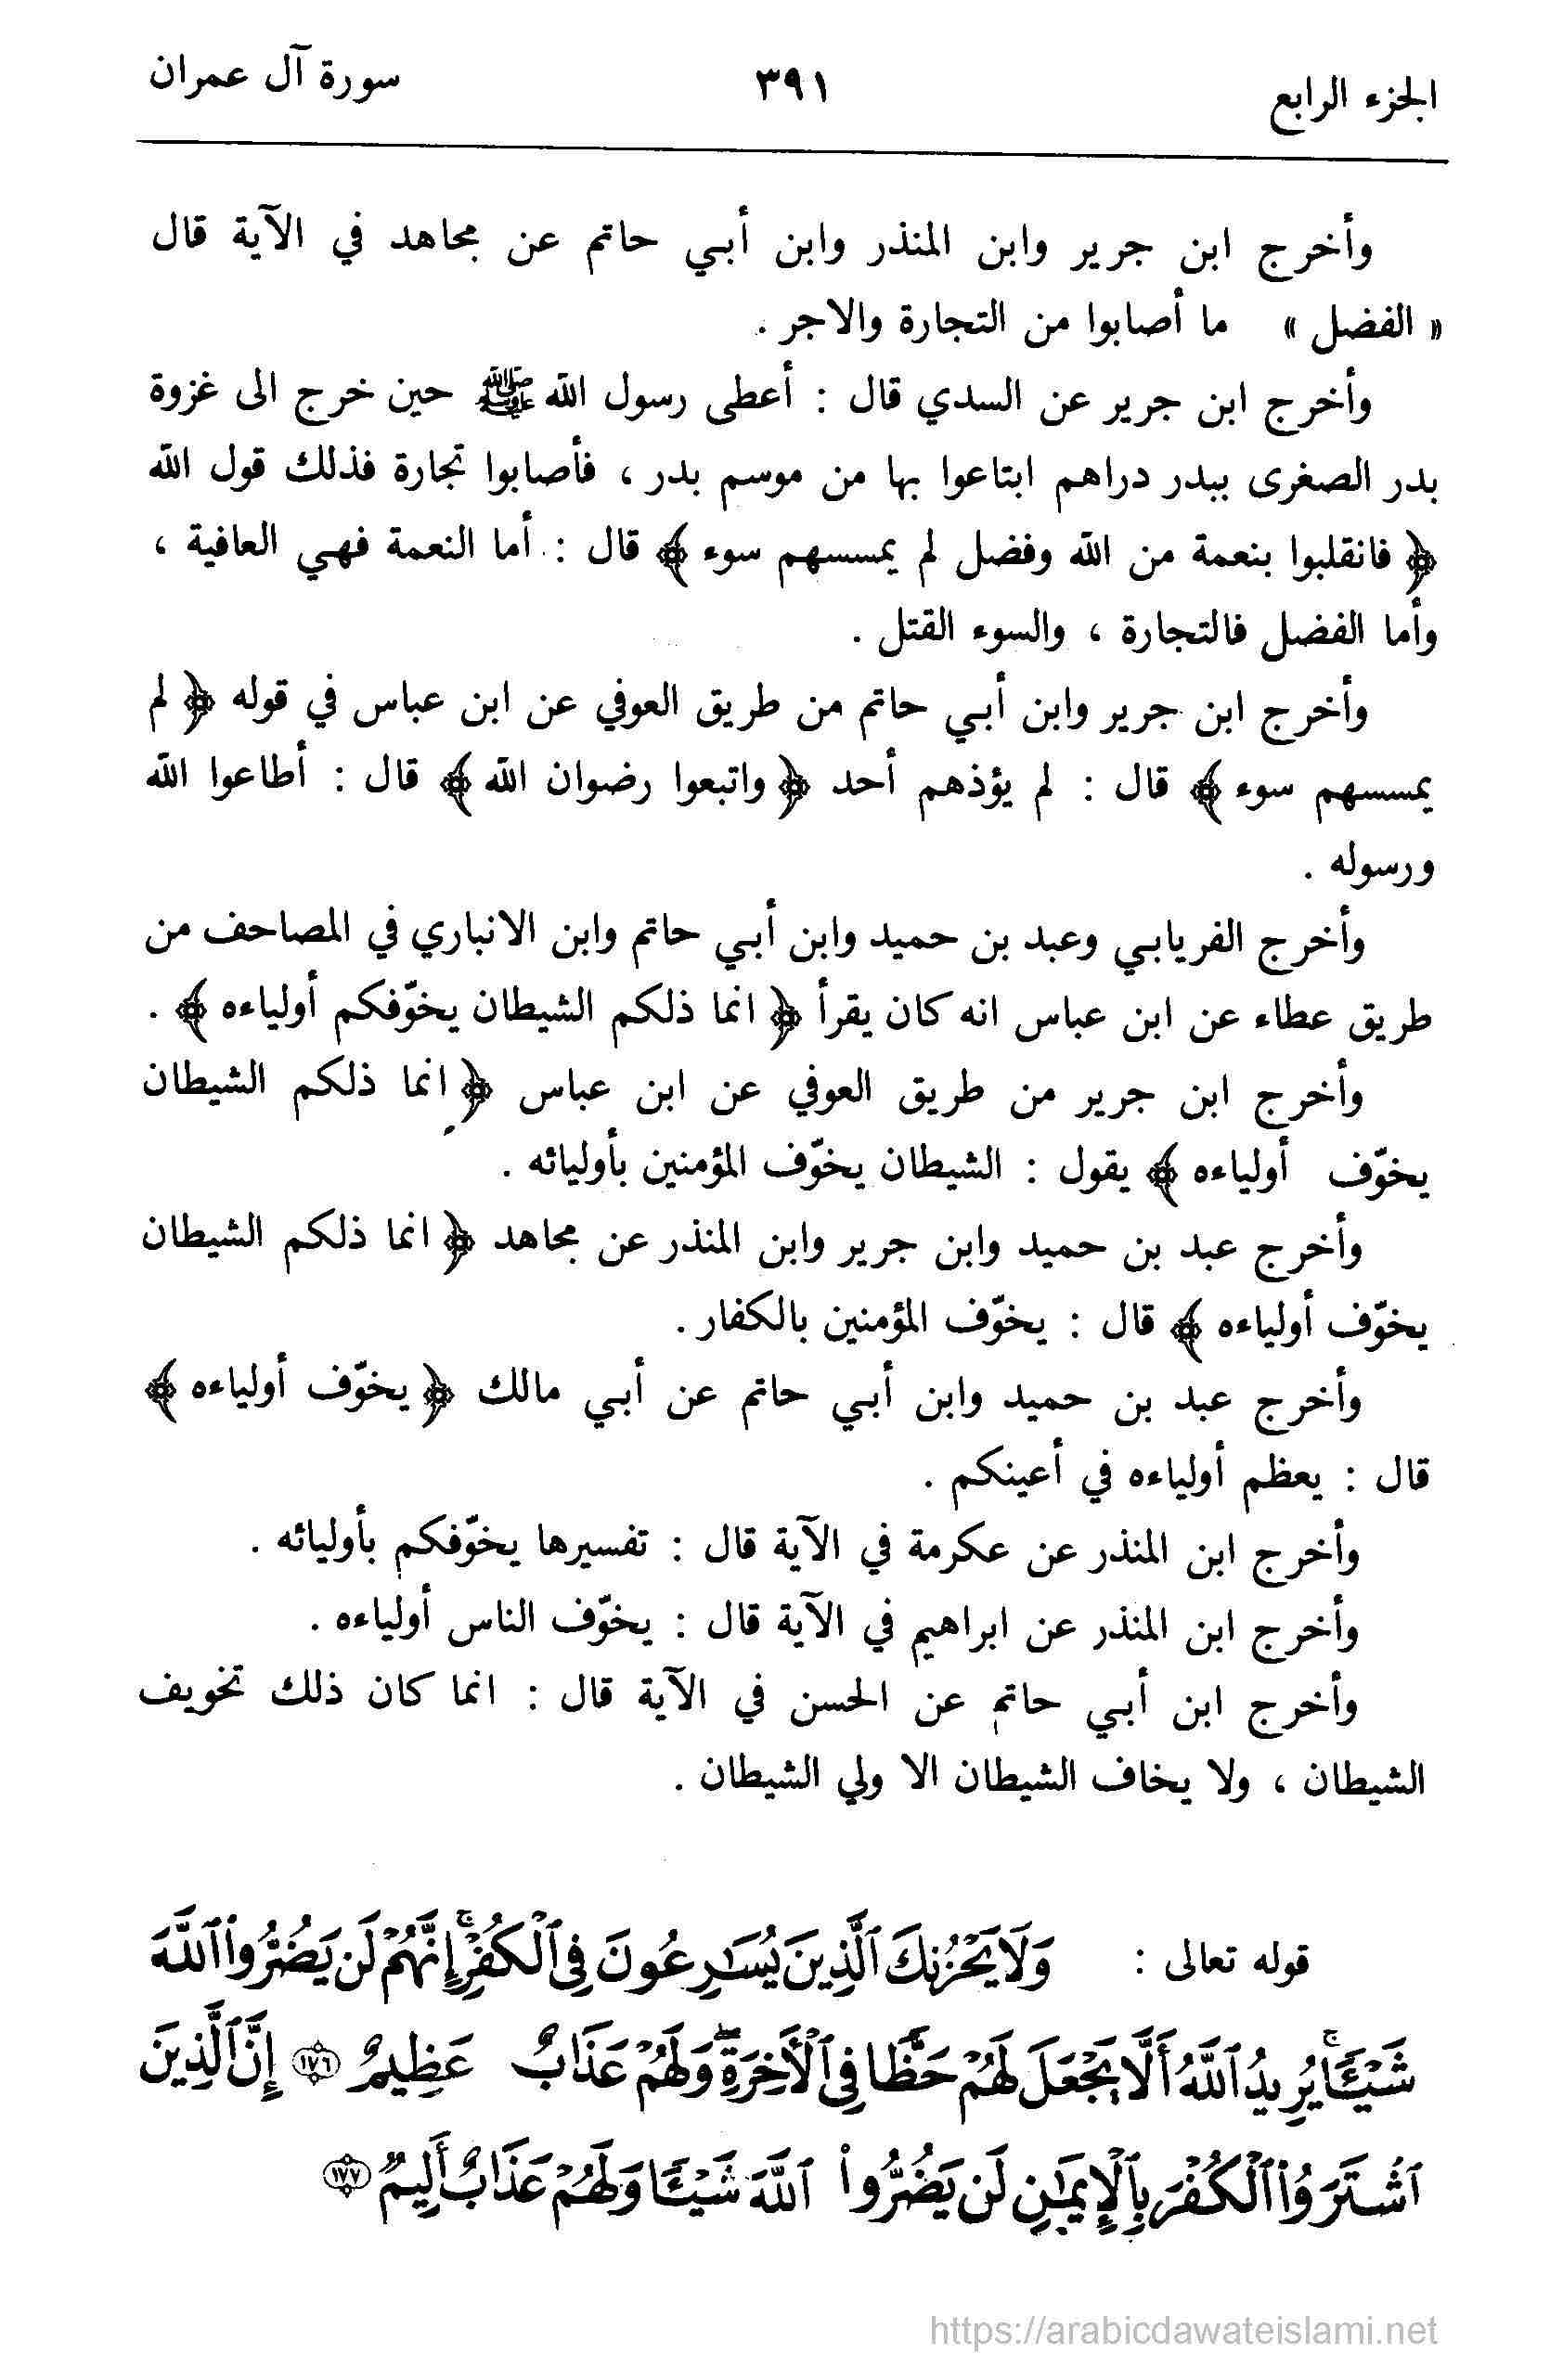 الجزء الرابع
٣٩١
سورة آل عمران
وأخرج ابن جرير وابن المنذر وابن أبي حاتم عن مجاهد في الآية قال
« الفضل » ما أصابوا من التجارة والاجر .
وأخرج ابن جرير عن السدي قال : أعطى رسول الله ﷺ حين خرج الى غزوة
بدر الصغرى ببدر دراهم ابتاعوا بها من موسم بدر ، فأصابوا تجارة فذلك قول الله
﴿ فانقلبوا بنعمة من الله وفضل لم يمسسهم سوء ﴾ قال : أما النعمة فهي العافية ،
وأما الفضل فالتجارة ، والسوء القتل .
وأخرج ابن جرير وابن أبي حاتم من طريق العوفي عن ابن عباس في قوله ﴿ لم
يمسسهم سوء ﴾ قال : لم يؤذهم أحد ﴿ واتبعوا رضوان الله ﴾ قال : أطاعوا الله
ورسوله .
وأخرج الفريابي وعبد بن حميد وابن أبي حاتم وابن الانباري في المصاحف من
طريق عطاء عن ابن عباس انه كان يقرأ ﴿ انما ذلكم الشيطان يخوّفكم أولياءه ﴾ .
وأخرج ابن جرير من طريق العوفي عن ابن عباس ﴿ انما ذلكم الشيطان
يخوّف أولياءه ﴾ يقول : الشيطان يخوّف المؤمنين بأوليائه .
وأخرج عبد بن حميد وابن جرير وابن المنذر عن مجاهد ﴿ انما ذلكم الشيطان
يخوّف أولياءه ﴾ قال : يخوّف المؤمنين بالكفار .
وأخرج عبد بن حميد وابن أبي حاتم عن أبي مالك ﴿ يخوّف أولياءه ﴾
قال : يعظم أولياءه في أعينكم .
وأخرج ابن المنذر عن عكرمة في الآية قال : تفسيرها يخوّفكم بأوليائه .
وأخرج ابن المنذر عن ابراهيم في الآية قال : يخوّف الناس أولياءه .
وأخرج ابن أبي حاتم عن الحسن في الآية قال : انما كان ذلك تخويف
الشيطان ، ولا يخاف الشيطان الا ولي الشيطان .
قوله تعالى : وَلَا يَحْزُنكَ ٱلَّذِينَ يُسَٰرِعُونَ فِى ٱلْكُفْرِ ۚ إِنَّهُمْ لَن يَضُرُّوا۟ ٱللَّهَ
شَيْـًٔا ۚ يُرِيدُ ٱللَّهُ أَلَّا يَجْعَلَ لَهُمْ حَظًّا فِى ٱلْأَخِرَةِ ۖ وَلَهُمْ عَذَابٌ عَظِيمٌ ١٧٦ إِنَّ ٱلَّذِينَ
ٱشْتَرَوُا۟ ٱلْكُفْرَ بِٱلْإِيمَٰنِ لَن يَضُرُّوا۟ ٱللَّهَ شَيْـًٔا وَلَهُمْ عَذَابٌ أَلِيمٌ ١٧٧
https://arabicdawateislami.net